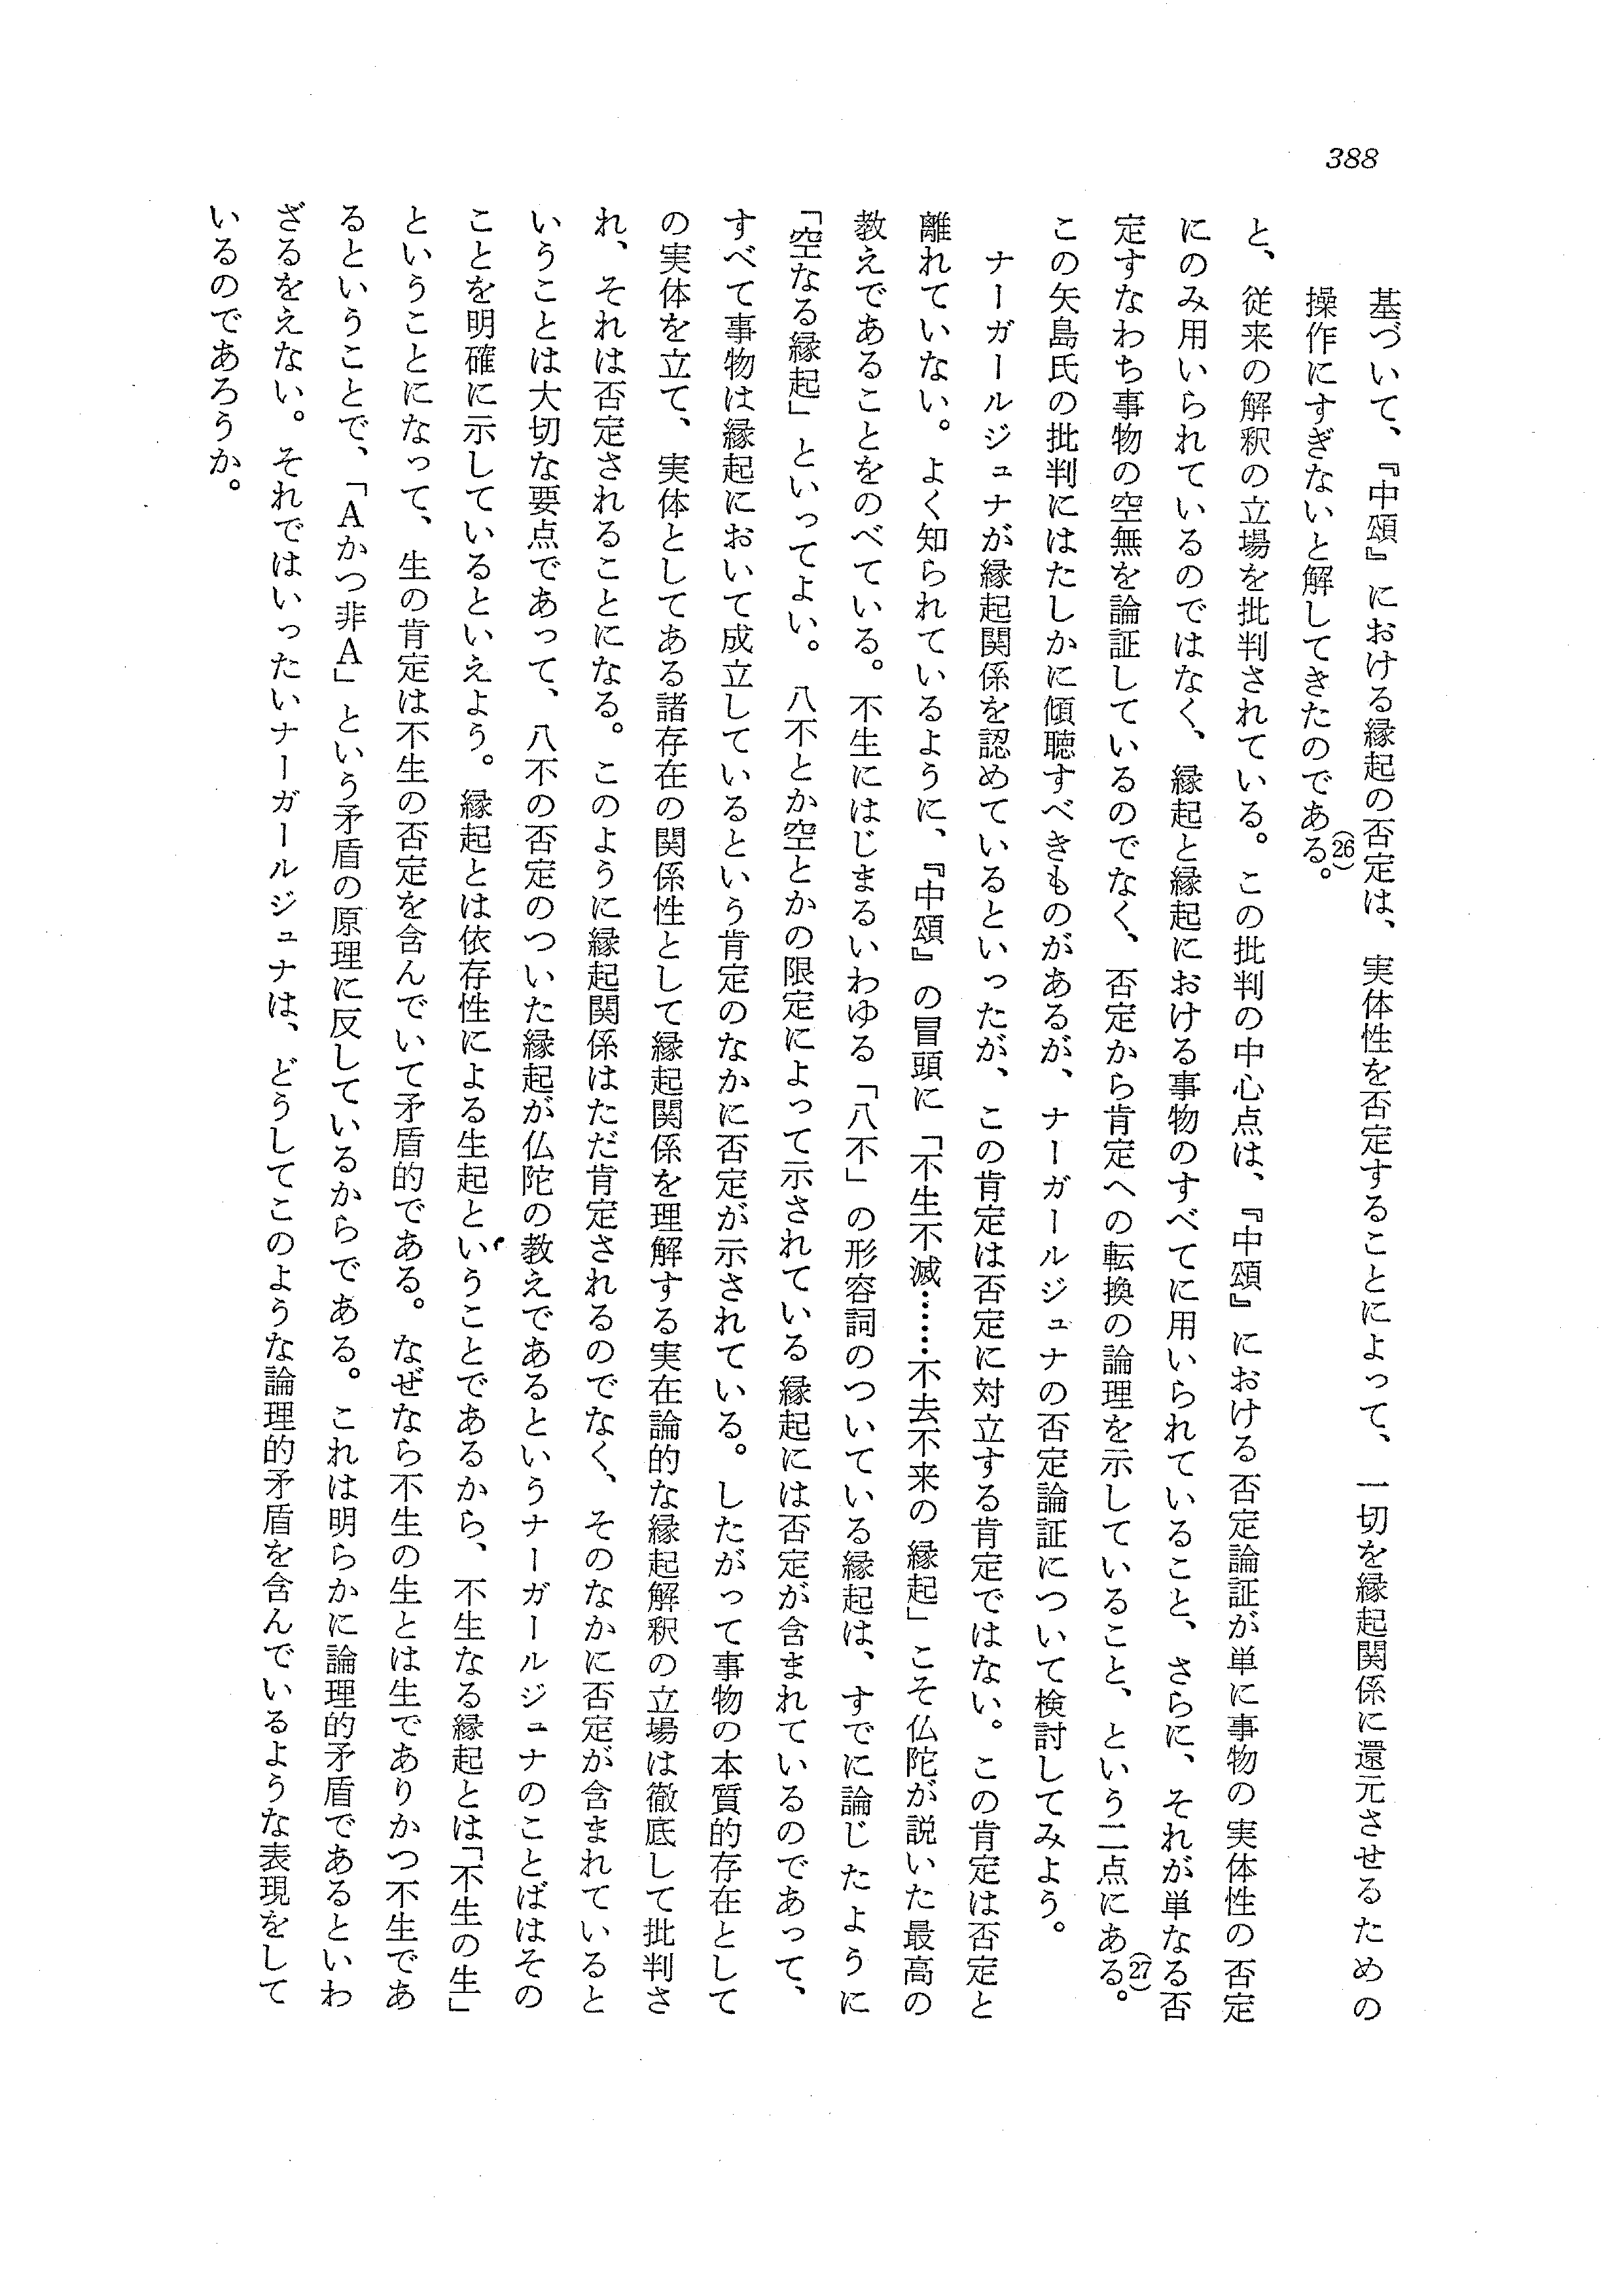 388
基づいて、『中頌』における縁起の否定は、実体性を否定することによって、一切を縁起関係に還元させるための
操作にすぎないと解してきたのである。(26)
と、従来の解釈の立場を批判されている。この批判の中心点は、『中頌』における否定論証が単に事物の実体性の否定
にのみ用いられているのではなく、縁起と縁起における事物のすべてに用いられていること、さらに、それが単なる否
定すなわち事物の空無を論証しているのでなく、否定から肯定への転換の論理を示していること、という二点にある。(27)
この矢島氏の批判にはたしかに傾聴すべきものがあるが、ナーガールジュナの否定論証について検討してみよう。
ナーガールジュナが縁起関係を認めているといったが、この肯定は否定に対立する肯定ではない。この肯定は否定と
離れていない。よく知られているように、『中頌』の冒頭に「不生不滅……不去不来の縁起」こそ仏陀が説いた最高の
教えであることをのべている。不生にはじまるいわゆる「八不」の形容詞のついている縁起は、すでに論じたように
「空なる縁起」といってよい。八不とか空とかの限定によって示されている縁起には否定が含まれているのであって、
すべて事物は縁起において成立しているという肯定のなかに否定が示されている。したがって事物の本質的存在として
の実体を立て、実体としてある諸存在の関係性として縁起関係を理解する実在論的な縁起解釈の立場は徹底して批判さ
れ、それは否定されることになる。このように縁起関係はただ肯定されるのでなく、そのなかに否定が含まれていると
いうことは大切な要点であって、八不の否定のついた縁起が仏陀の教えであるというナーガールジュナのことばはその
ことを明確に示しているといえよう。縁起とは依存性による生起ということであるから、不生なる縁起とは「不生の生」
ということになって、生の肯定は不生の否定を含んでいて矛盾的である。なぜなら不生の生とは生でありかつ不生であ
るということで、「Aかつ非A」という矛盾の原理に反しているからである。これは明らかに論理的矛盾であるといわ
ざるをえない。それではいったいナーガールジュナは、どうしてこのような論理的矛盾を含んでいるような表現をして
いるのであろうか。